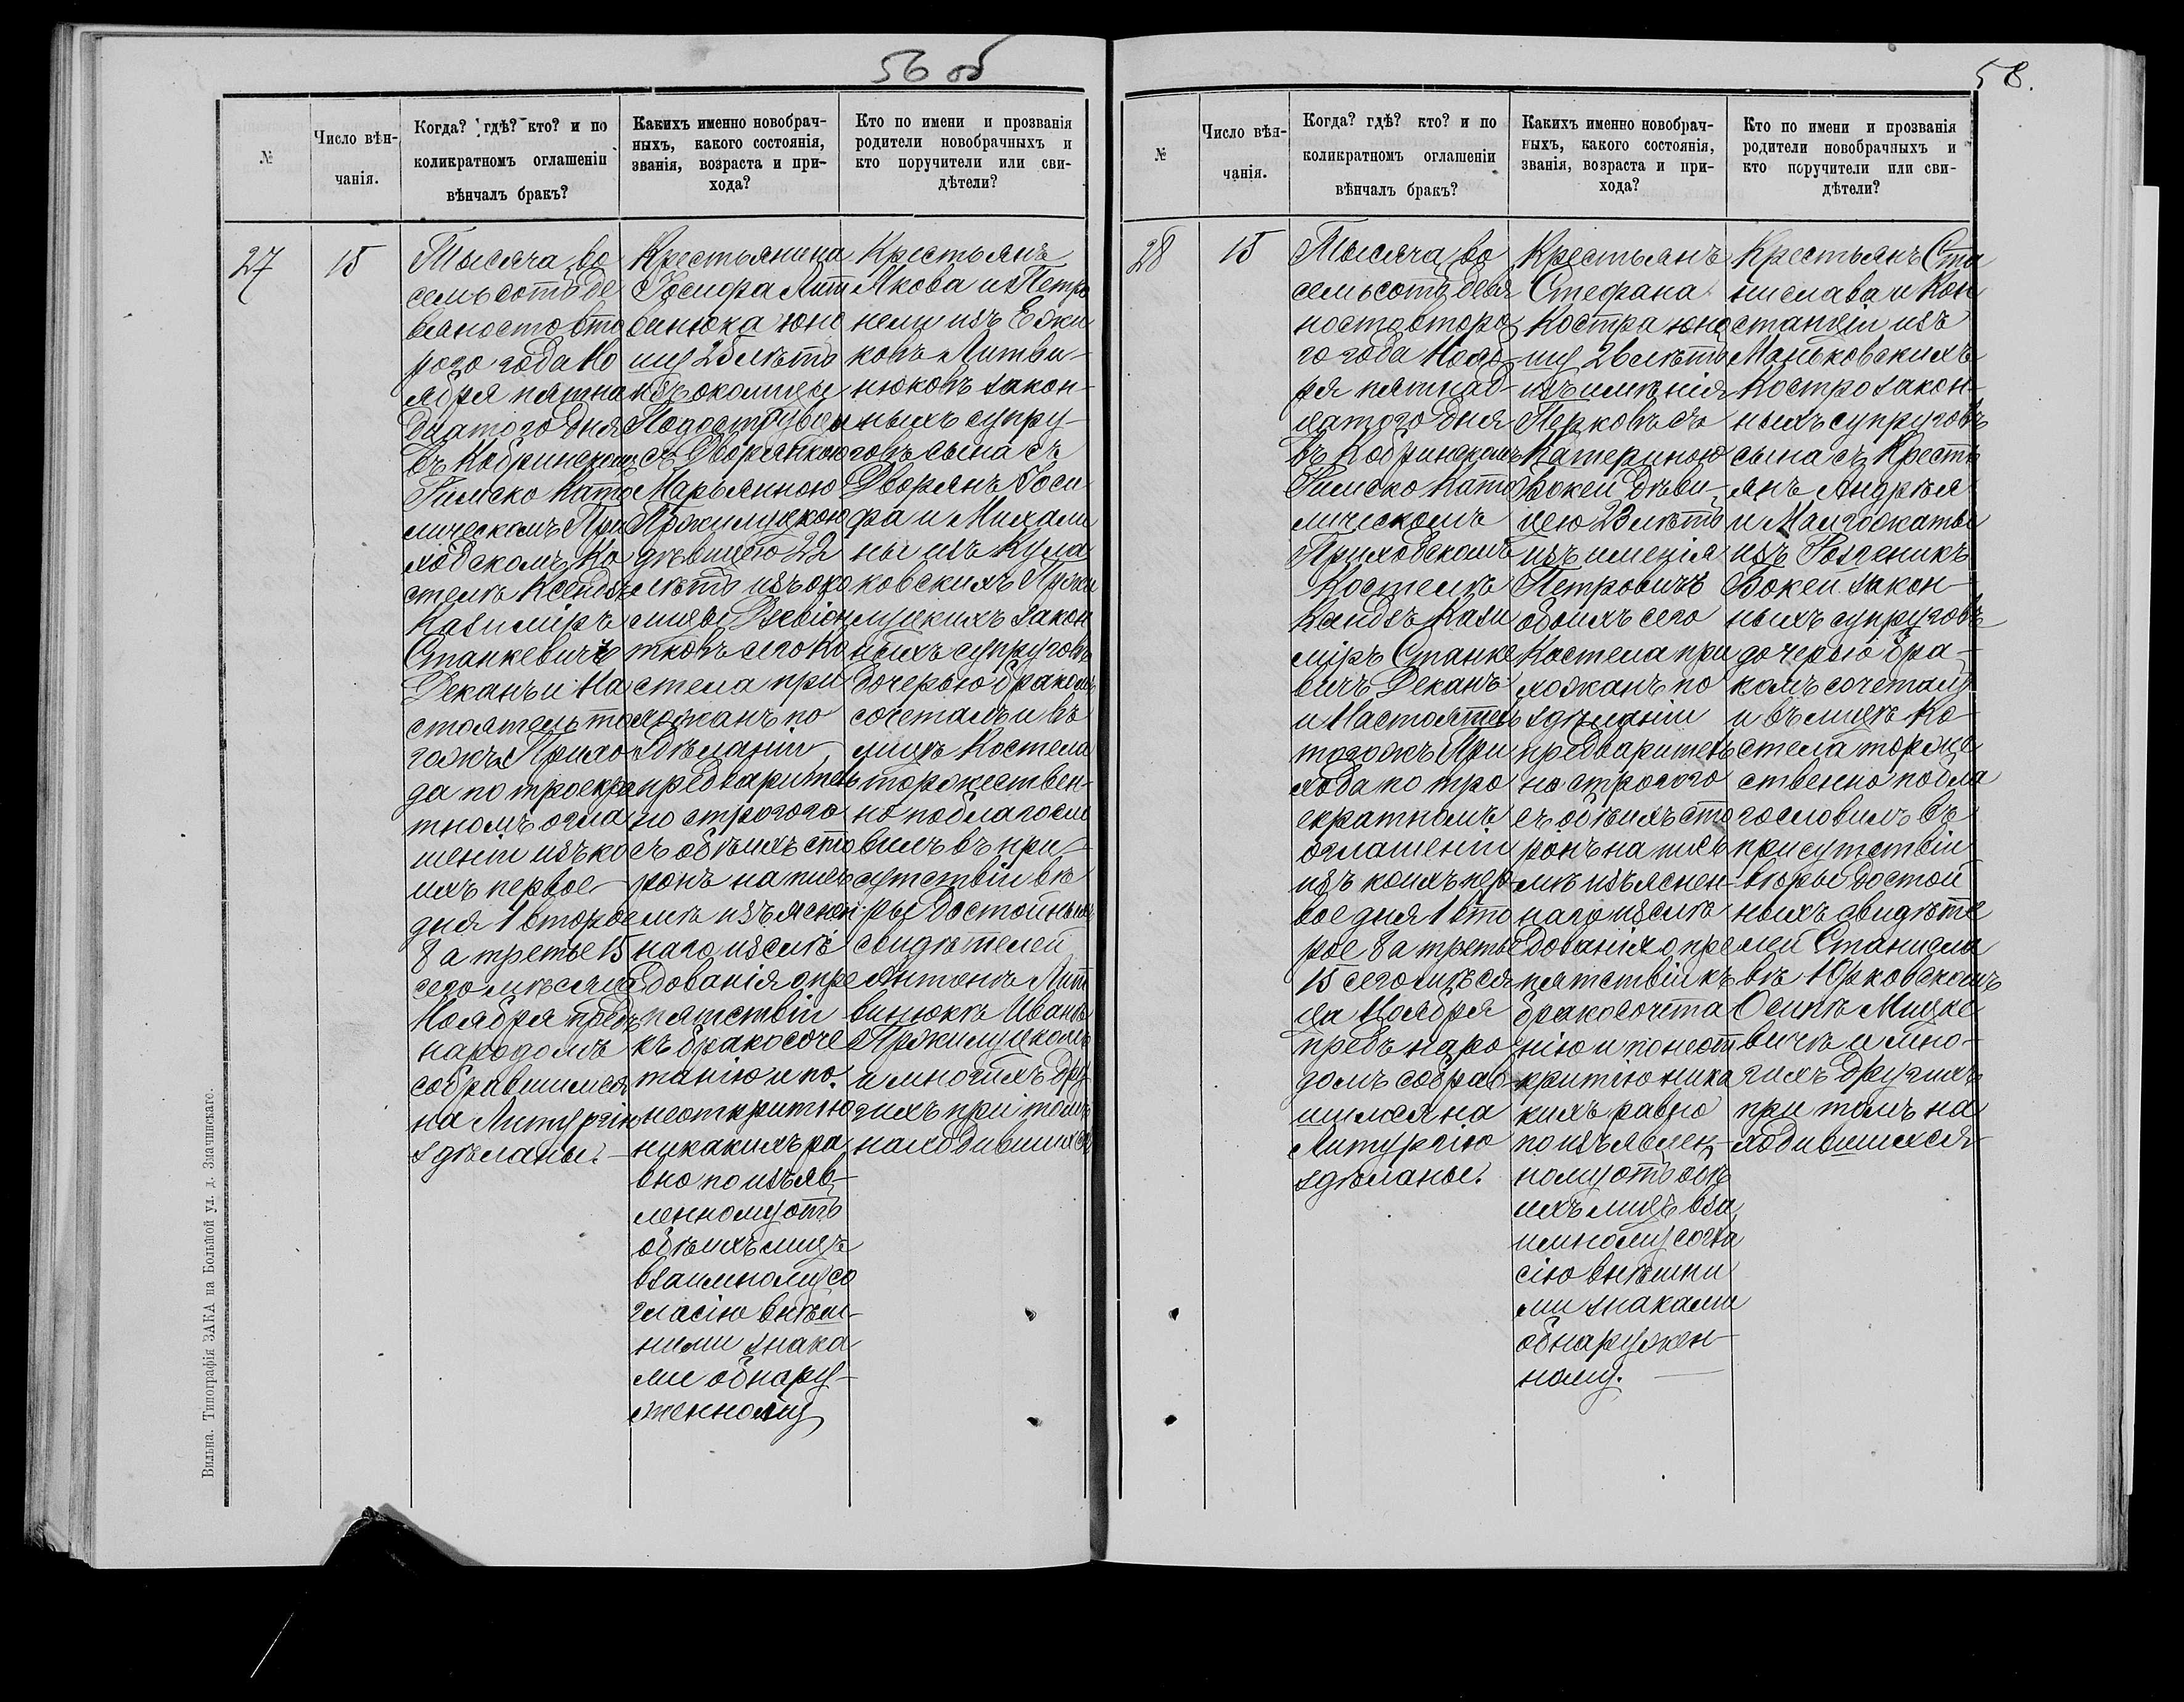 56 об
№
Число вѣн-
чанія.
Когда? гдѣ? кто? и по
коликратномъ оглашеніи
вѣнчалъ бракъ?
Какихъ именно новобрач-
ныхъ, какого состоянія,
званія, возраста и при-
хода?
Кто по имени и прозванія
родители новобрачныхъ и
кто поручители или сви-
дѣтели?
27
15
Тысяча во
семьсотъ де
вяносто вто
рого года Но
ября пятна
дцатого дня
въ Кобринском
Римско Като
лическомъ При
ходскомъ Ко
стелѣ Ксендзъ
Казиміръ
Станкевичъ
Деканъ и На
стоятель то
гожъ Прихо
да по троекра
тномъ огла
шеніи изъ ко
ихъ первое
дня 1 второе
8 а третье 15
сего мѣсяца
Ноября предъ
народомъ
собравшимся
на Литургію
здѣланы.
Крестьянина
Іосифа Лит
винюка юно
шу 25 лѣтъ
изъ околицы
съ Дворянкою
Марьянною
Пржилуцкою
дѣвицею 22
лѣтъ изъ око
лицы
тковъ сего Ко
стела при
хожанъ по
здѣланіи
предваритель
но строгого
съ обѣихъ сто
ронъ на пись
мѣ изъяснен
наго изслѣ
дованія о пре
пятствіи
къ бракосоче
танію и по
неоткрытію
никакихъ ра
вно по изъяв-
ленному отъ
обѣихъ лицъ
взаимному со
гласію внѣш-
ними знака
ми обнару-
женному
Крестьянъ
Якова и Петро
нели изъ
ковъ Литви-
нюковъ закон-
ныхъ супру-
говъ сына съ
Дворянъ Іоси
фа и Михали
ны изъ Кула
ковскихъ Пржи
луцкихъ закон
ныхъ супруговъ
дочерью бракомъ
сочеталъ и въ
лицѣ Костела
торжествен-
но поблагосло
вилъ въ при-
сутствіи вѣ
ры достойныхъ
свидѣтелей
Антона Лит
винюка Ивана
Пржилуцкомъ
и многихъ дру
гихъ при томъ
находившихся
Вильна. Типографія ЗАКА на Большой ул. д. Значинскаго.
58.
№
Число вѣн-
чанія.
Когда? гдѣ? кто? и по
коликратномъ оглашеніи
вѣнчалъ бракъ?
Какихъ именно новобрач-
ныхъ, какого состоянія,
званія, возраста и при-
хода?
Кто по имени и прозванія
родители новобрачныхъ и
кто поручители или сви-
дѣтели?
28
15
Тысяча во
семьсотъ девя
носто второ
го года Нояб
ря пятнад-
цатого дня
въ Кобринскомъ
Римско Като
лическомъ
Приходскомъ
Костелѣ
Ксендзъ Кази
міръ Станке
вичъ Деканъ
и Настоятель
тогожъ При
хода по тро
екратномъ
оглашеніи
изъ коихъ пер
вое дня 1 вто
рое 8 а третье
15 сего мѣся
ца Ноября
предъ наро
домъ собрав
шимся на
Литургію
здѣланы.
Крестьянъ
Стефана
Костра юно
шу 26 лѣтъ
изъ имѣнія
Перковъ съ
Катериною
Бокей дѣви-
цею 23 лѣтъ
изъ имѣнія
Петровичъ
обоихъ сего
Костела при
хожанъ по
здѣланіи
предваритель
но строгого
съ обѣихъ сто
ронъ на пись
мѣ изъяснен-
наго изслѣ
дованія о пре
пятствіи къ
бракосочета
нію и по неот
крытію ника
кихъ равно
по изъявлен
ному отъ обѣ
ихъ лицъ вза
имному согла
сію внѣшни
ми знаками
обнаружен-
ному.
Крестьянъ Ста
нислава и Кон
станціи изъ
Маньковскихъ
Костро закон-
ныхъ супруговъ
сына съ Кресть
янъ Андрѣя
и
изъ
Бокей закон-
ныхъ супруговъ
дочерью бра-
комъ сочеталъ
и въ лицѣ Ко-
стела торже
ственно побла
гословилъ въ
присутствіи
вѣры достой
ныхъ свидѣте
лей Станисла
вѣ Юрковскомъ
Осипѣ Мицке
вичѣ и мно-
гихъ другихъ
при томъ на
ходившихся